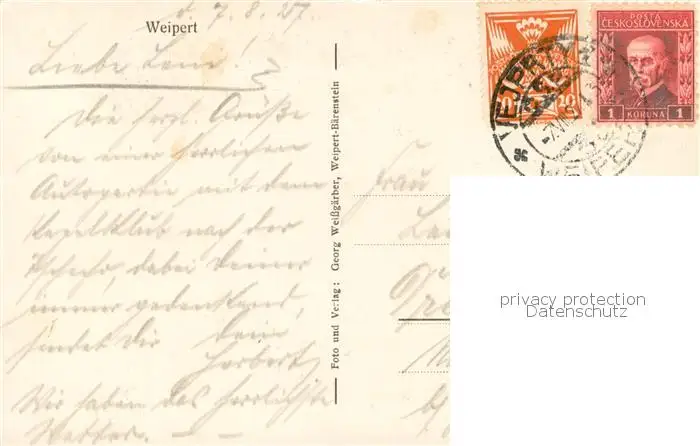 d. 7. 8. 27.
Weipert
Liebe Leni!
Die herzl. Grüße
von einer herrlichen
Autopartie mit dem
Kegelklub nach der
Tschecho, dabei Deiner
immer gedenkend,
sendet Dir Dein
Herbert
Wir haben das herrlichste
Wetter. – –
Foto und Verlag: Georg Weißgärber, Weipert-Bärenstein
20
POŠTA
ČESKOSLOVENSKÁ
1 KORUNA 1
WEIPERT
Frau
privacy protection
Datenschutz